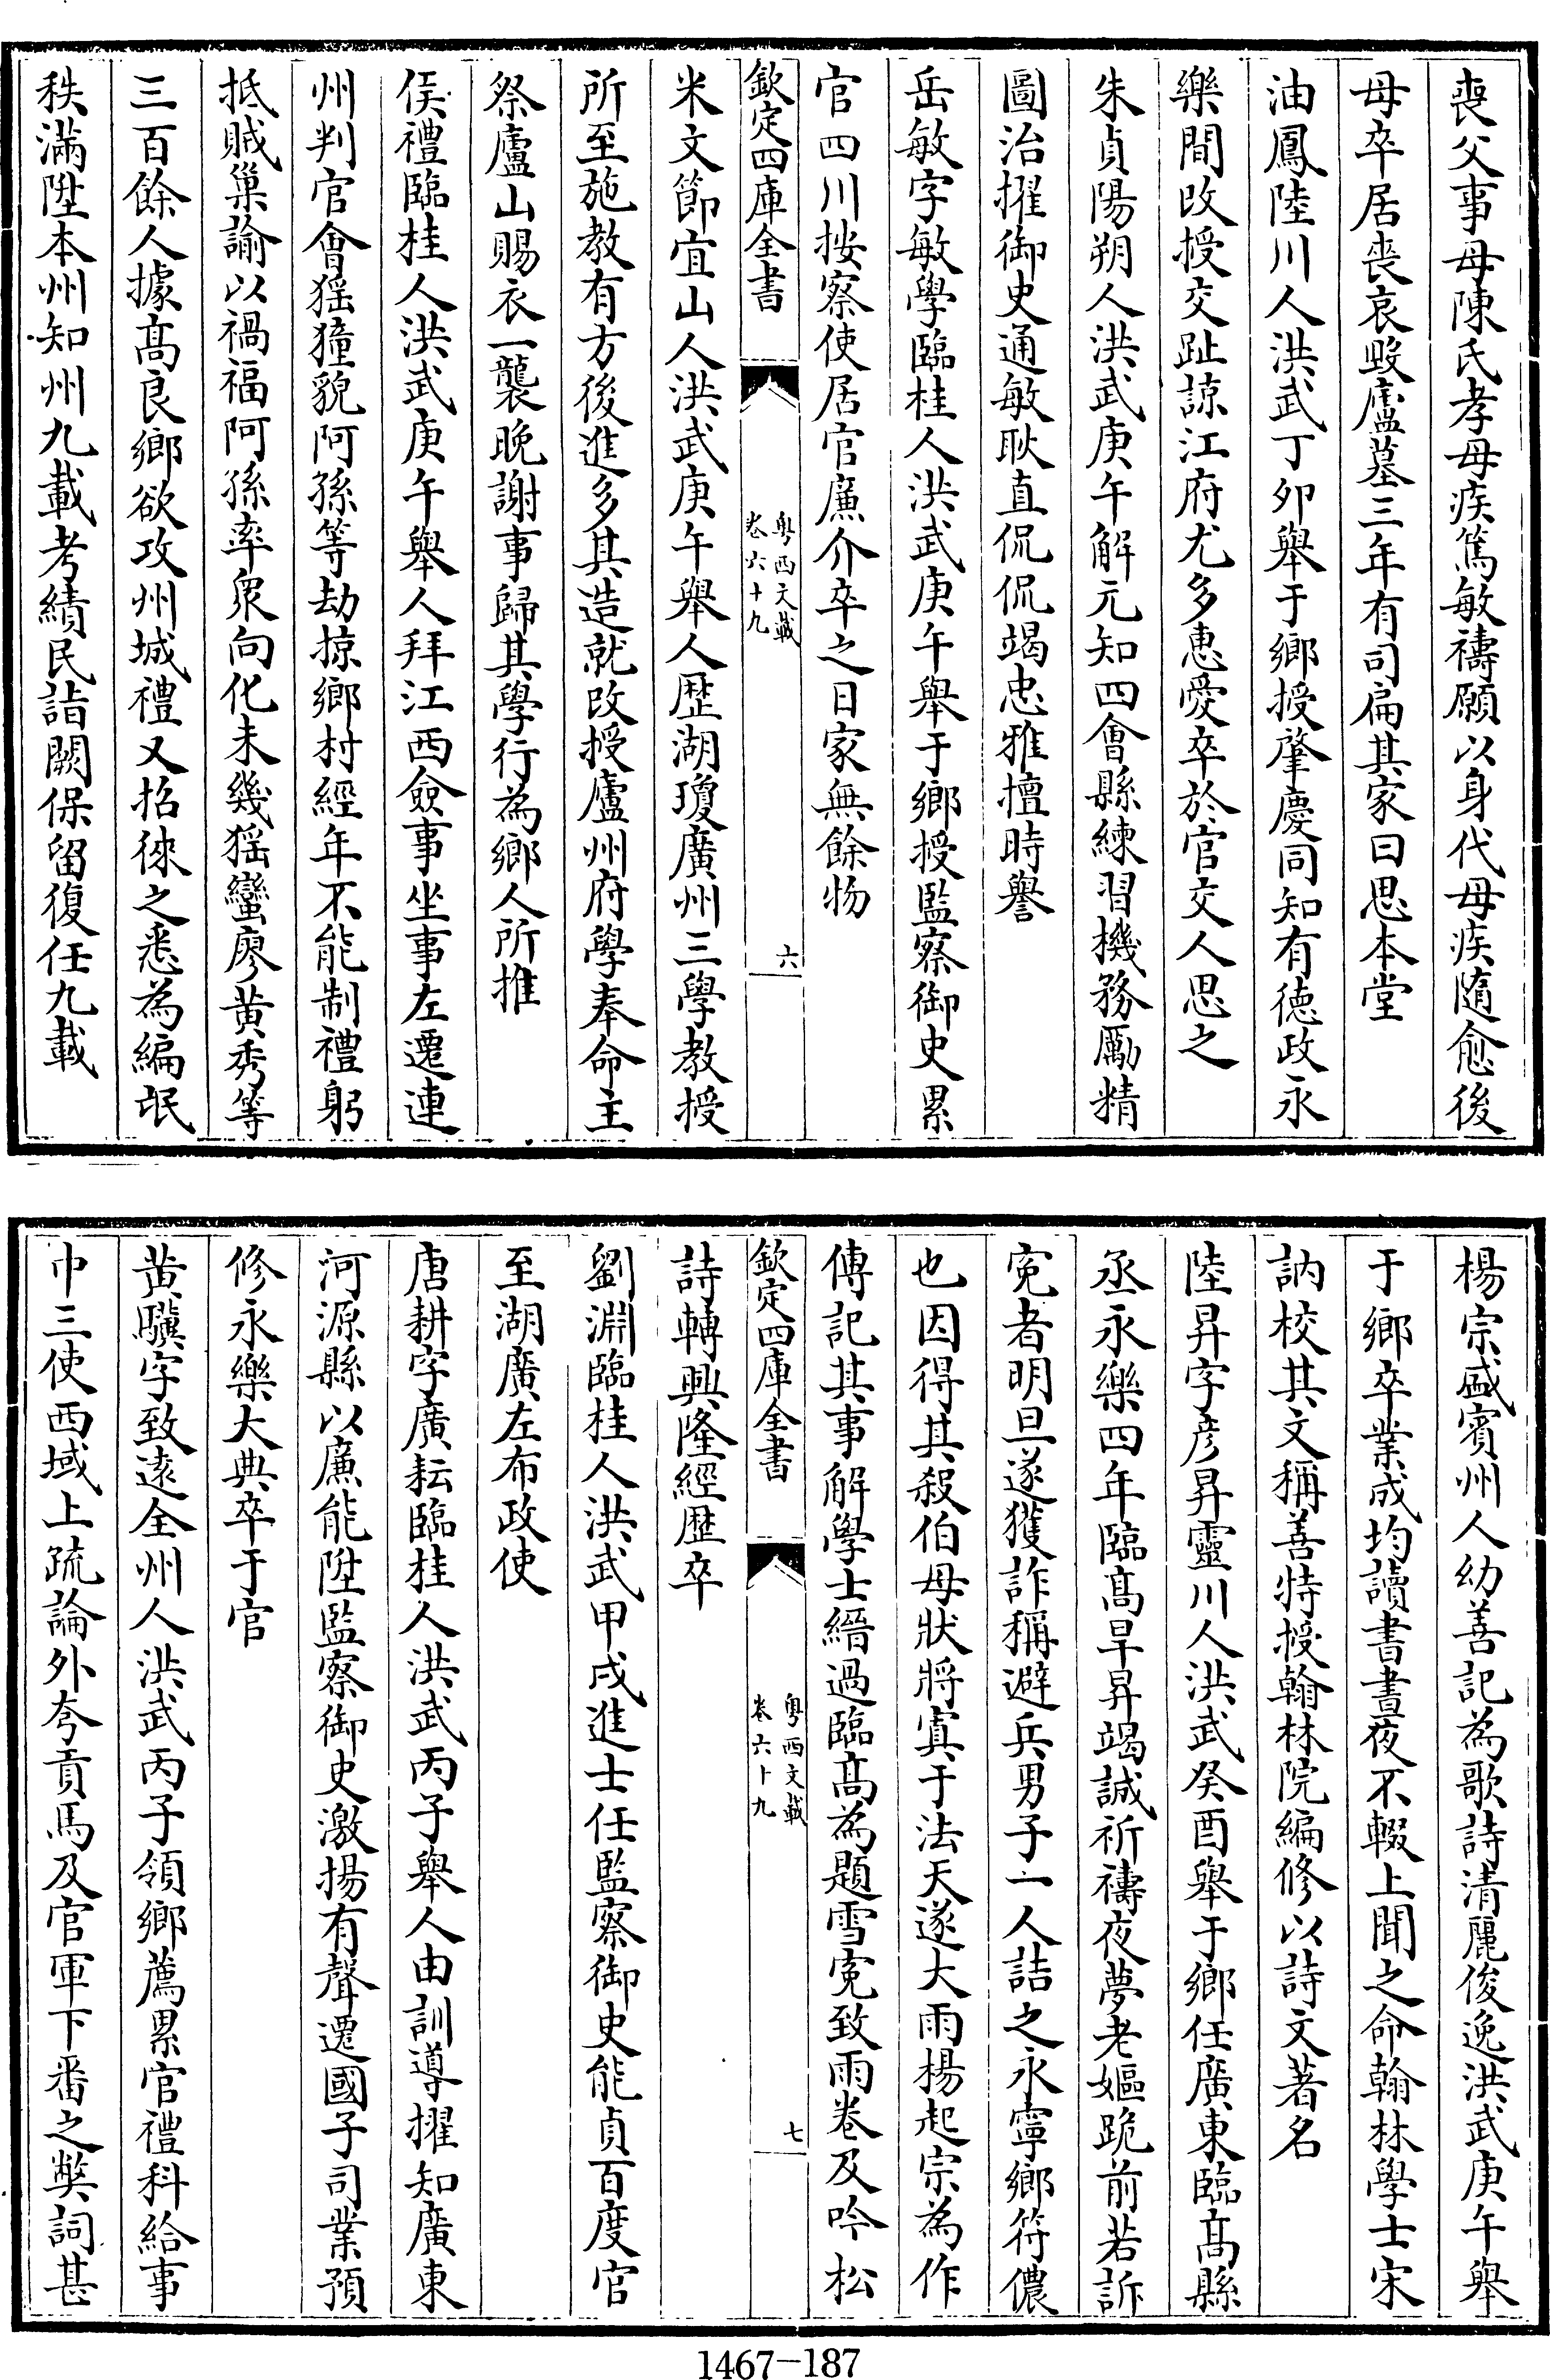 喪父事母陳氏孝母疾篤敏禱願以身代母疾隨愈後
母卒居喪哀毀廬墓三年有司扁其家曰思本堂
油鳳陸川人洪武丁卯舉于鄉授肇慶同知有徳政永
樂間改授交趾諒江府尤多惠愛卒於官交人思之
朱貞陽朔人洪武庚午解元知四會縣練習機務勵精
圖治擢御史通敏耿直侃侃竭忠雅擅時譽
岳敏字敏學臨桂人洪武庚午舉于鄉授監察御史累
官四川按察使居官廉介卒之日家無餘物
欽定四庫全書
粵西文載
卷六十九
六
米文節宜山人洪武庚午舉人歴湖瓊廣州三學教授
所至施教有方後進多其造就改授廬州府學奉命主
祭廬山賜衣一襲晚謝事歸其學行為鄉人所推
侯禮臨桂人洪武庚午舉人拜江西僉事坐事左遷連
州判官會猺獞貌阿孫等劫掠鄉村經年不能制禮躬
抵賊巢諭以禍福阿孫率衆向化未幾猺蠻廖黄秀等
三百餘人據髙良鄉欲攻州城禮又招徠之悉為編氓
秩滿陞本州知州九載考績民詣闕保留復任九載
楊宗盛賓州人幼善記為歌詩清麗俊逸洪武庚午舉
于鄉卒業成均讀書晝夜不輟上聞之命翰林學士宋
訥校其文稱善特授翰林院編修以詩文著名
陸昇字彦昇靈川人洪武癸酉舉于鄉任廣東臨髙縣
丞永樂四年臨髙旱昇竭誠祈禱夜夢老嫗跪前若訴
寃者明旦遂獲詐稱避兵男子一人詰之永寧鄉符儂
也因得其殺伯母狀將寘于法天遂大雨楊起宗為作
傳記其事解學士縉過臨髙為題雪寃致雨卷及吟松
欽定四庫全書
粵西文載
卷六十九
七
詩轉興隆經歴卒
劉淵臨桂人洪武甲戌進士任監察御史能貞百度官
至湖廣左布政使
唐耕字廣耘臨桂人洪武丙子舉人由訓導擢知廣東
河源縣以廉能陞監察御史激揚有聲遷國子司業預
修永樂大典卒于官
黄驥字致逺全州人洪武丙子領鄉薦累官禮科給事
中三使西域上疏論外夸貢馬及官軍下番之獘詞甚
1467-187